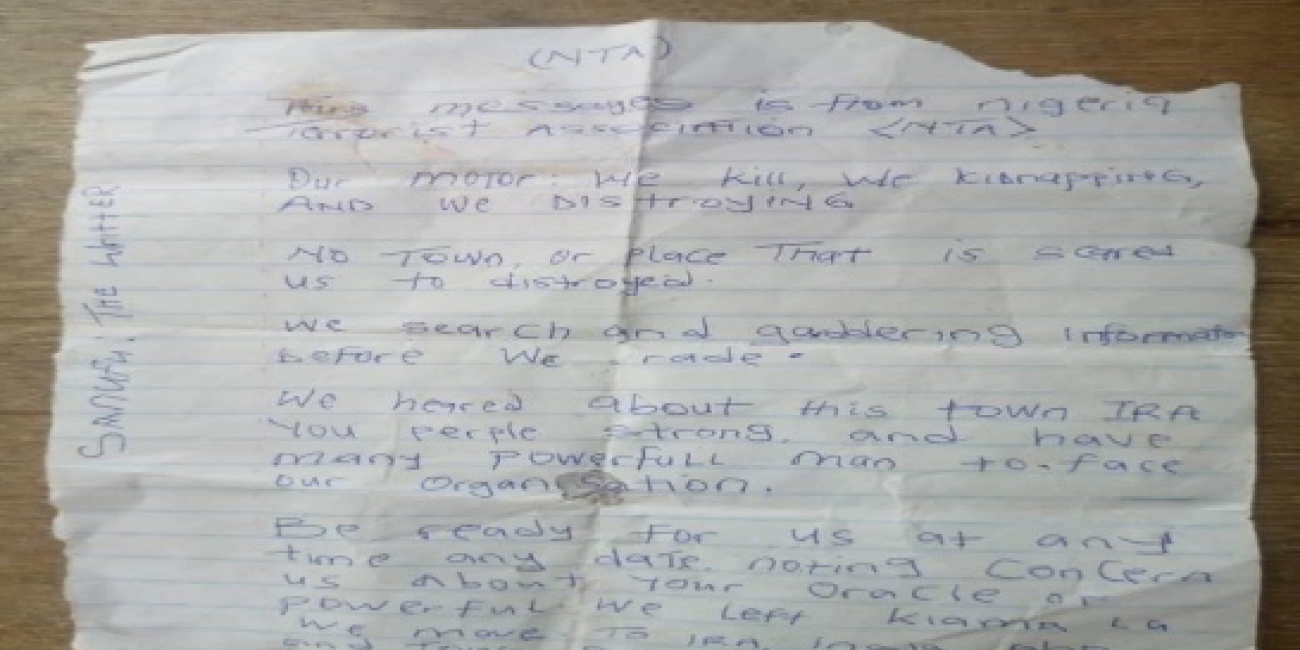 (NTA)
This messages is from nigeria
Terrorist Association <NTA>
Our motor: We kill, We kidnappinG,
AND we DIStroyING
No Town, or place That is scered
us to distroyed.
We search and gaddering informatn
before We rade.
We heared about this town IRA
You perple strong, and have
many powerfull man to-face
our Organisation.
Be ready for us at any
time any date. noting ConCern
us About Your Oracle or
Powerful We left Kiama LG
We move To IRA
and
SANUFU: THE WRITTER